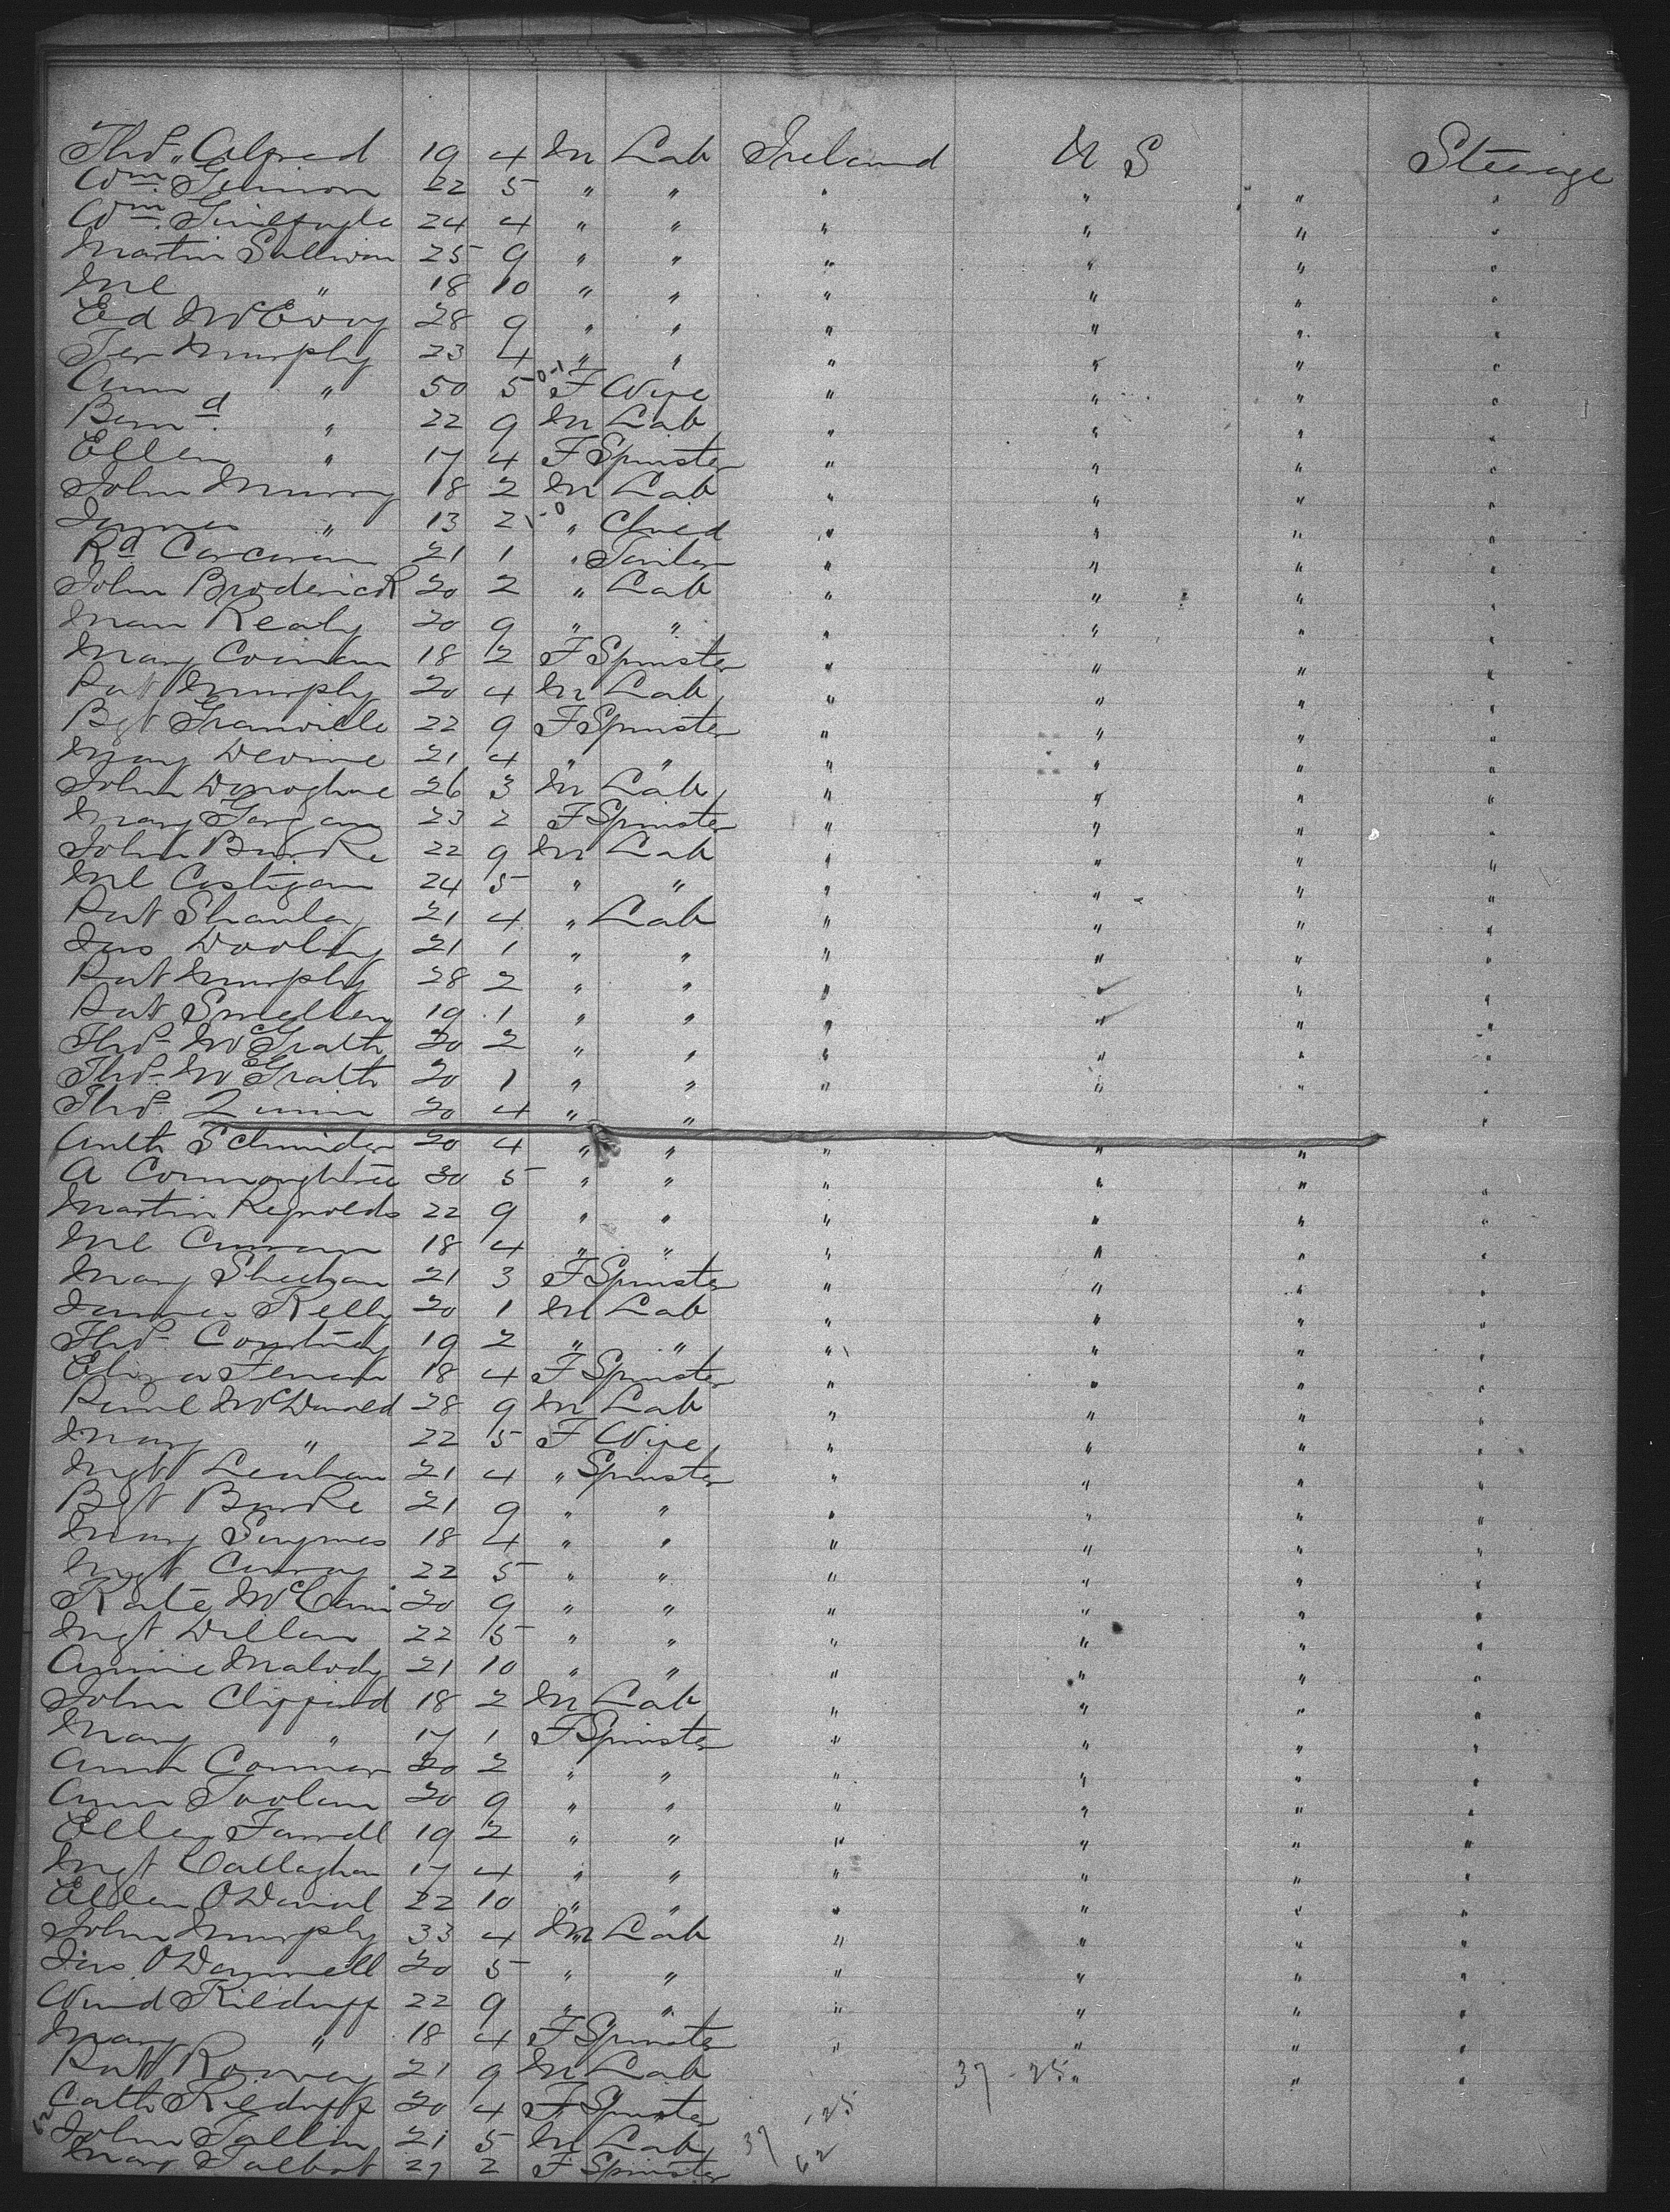 Thos. Alfred 19 4 M Lab Ireland U S Steerage
Wm. 22 5 " " " " " "
Wm. 24 4 " " " " " "
Martin Sullivan 25 9 " " " " " "
Ml " 18 10 " " " " " "
Ed McEvoy 28 9 " " " " " "
Jer Murphy 23 4 " " " " " "
Ann " 50 5 F Wife " " " "
Bernd. " 22 9 M Lab " " " "
Ellen " 17 4 F Spinster " " " "
John Murray 18 2 M Lab " " " "
James " 13 2 " Child " " " "
Rd Corcoran 21 1 " Tailor " " " "
John Broderick 20 2 " Lab " " " "
Realy 20 9 " " " " " "
Mary 18 2 F Spinster " " " "
Pat Murphy 20 4 M Lab " " " "
Bgt Granville 22 9 F Spinster " " " "
Mary Devine 21 4 " " " " " "
John Donoghue 26 3 M Lab " " " "
Mary Gargan 23 2 F Spinster " " " "
John Burke 22 9 M Lab " " " "
Ml Costigan 24 5 " " " " " "
Pat Shanley 21 4 " Lab " " " "
Jas Dooley 21 1 " " " " " "
Pat Murphy 28 2 " " " " " "
Pat 19 1 " " " " " "
Thos. McGrath 20 2 " " " " " "
Thos. McGrath 20 1 " " " " " "
Thos. Quinn 20 4 " " "
Schnider 20 4 " " " " "
A Connaughton 30 5 " " " " " "
Martin Reynolds 22 9 " " " " " "
Ml Curran 18 4 " " " " " "
Mary Sheehan 21 3 F Spinster " " " "
James Kelly 20 1 M Lab " " " "
Thos. 19 2 " " " " " "
Eliza 18 4 F Spinster " " " "
McDonald 28 9 M Lab " " " "
Mary " 22 5 F Wife " " " "
Mgt Lenihan 21 4 " Spinster " " " "
Bgt Burke 21 9 " " " " " "
Mary 18 4 " " " " " "
Mgt 22 5 " " " " " "
Kate McCann 20 9 " " " " " "
Mgt Dillon 22 5 " " " " " "
Annie Malody 21 10 " " " " " "
John Clifford 18 2 M Lab " " " "
Mary " 17 1 F Spinster " " " "
Connor 20 2 " " " " " "
Ann Toolan 20 9 " " " " " "
Ellen Farrell 19 2 " " " " " "
Mgt Callaghan 17 4 " " " " " "
Ellen O'Daniel 22 10 " " " " " "
John Murphy 33 4 M Lab " " " "
Jas. O'Donnell 20 5 " " " " " "
Kilduff 22 9 " " " " " "
Mary " 18 4 F Spinster " " " "
Patk 21 9 M Lab 37 - 25 " " "
Cath Kilduff 20 4 F Spinster 25
62 John Tallin 21 5 M Lab 37 62
Mary Talbot 27 2 F Spinster